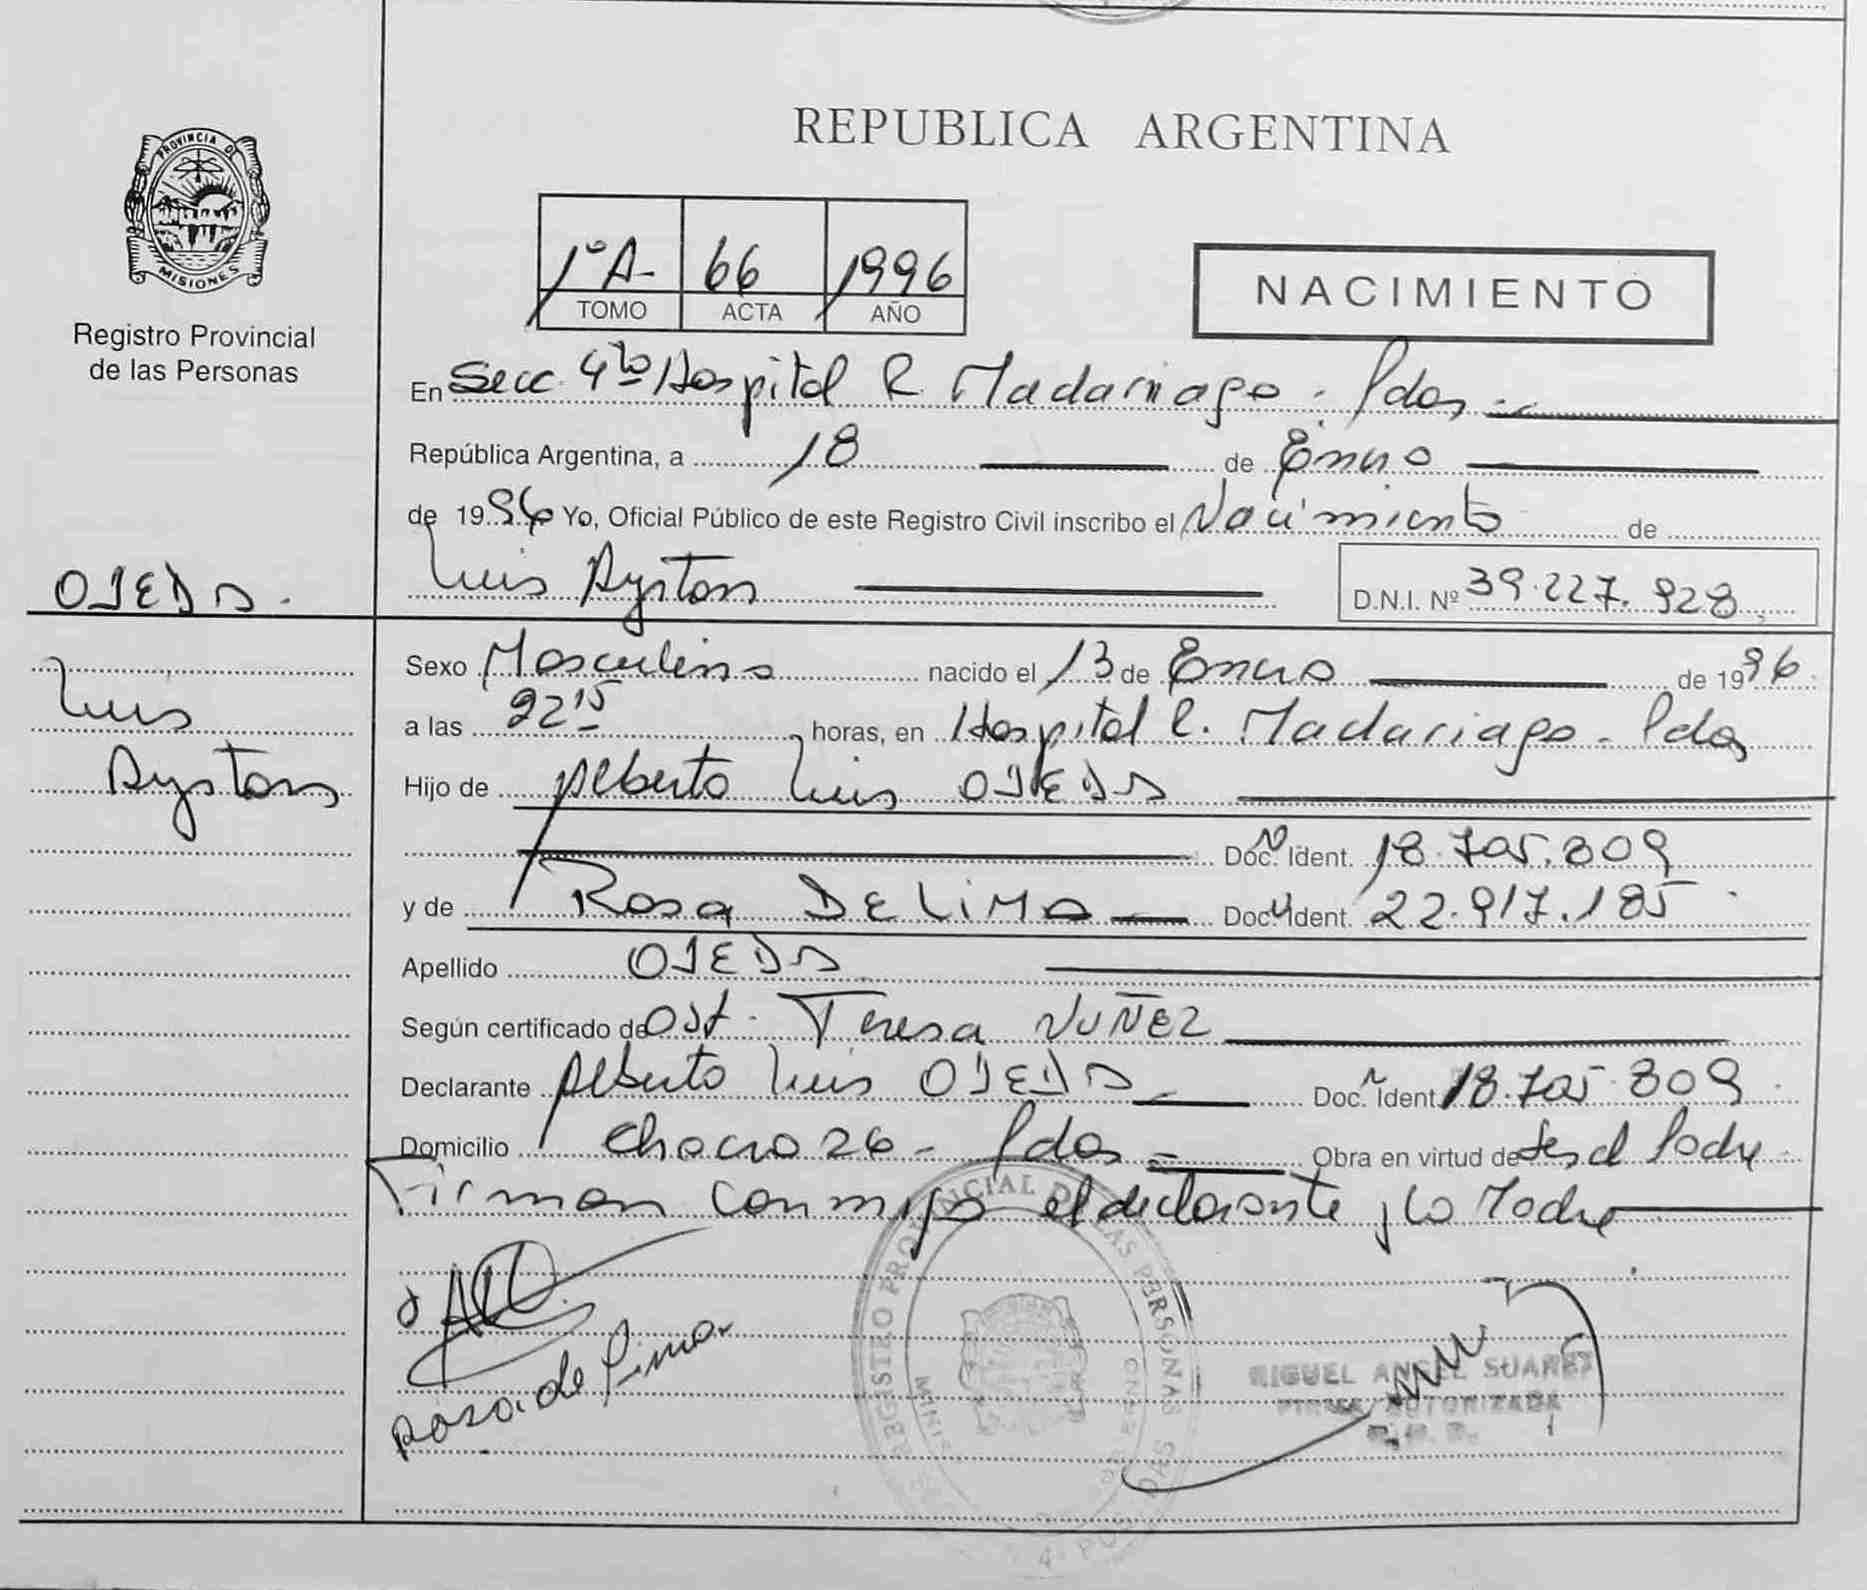 PROVINCIA DE
MISIONES
Registro Provincial
de las Personas
OJEDA.
Luis
Ayrton
REPUBLICA ARGENTINA
1º A- 66 1996
TOMO ACTA AÑO
NACIMIENTO
En Secc. 4ta Hospital R. Madariaga - Pdas
República Argentina, a 18 de Enero
de 1996 Yo, Oficial Público de este Registro Civil inscribo el Nacimiento de
Luis Ayrton D.N.I. Nº 39.227.928
Sexo Masculino nacido el 13 de Enero de 1996
a las 22 15 horas, en Hospital R. Madariaga - Pdas
Hijo de Alberto Luis OJEDA
Doc. Ident. 18.705.809
y de Rosa DE LIMA Doc. Ident. 22.917.185
Apellido OJEDA
Según certificado de Ost. Teresa NUÑEZ
Declarante Alberto Luis OJEDA Doc. Ident 18.705.809
Domicilio Chacra 26 - Pdas Obra en virtud de Ser el Padre
Firman conmigo el declarante y la Madre
Rosa de Lima
REGISTRO PROVINCIAL DE LAS PERSONAS
MIGUEL ANGEL SUAREZ
FIRMA AUTORIZADA